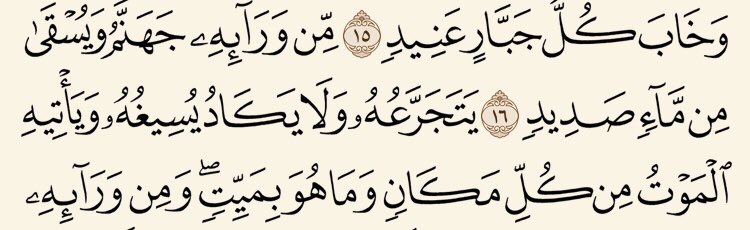 وَخَابَ كُلُّ جَبَّارٍ عَنِيدٍ ١٥ مِّن وَرَآئِهِۦ جَهَنَّمُ وَيُسْقَىٰ
مِن مَّآءٍ صَدِيدٍ ١٦ يَتَجَرَّعُهُۥ وَلَا يَكَادُ يُسِيغُهُۥ وَيَأْتِيهِ
ٱلْمَوْتُ مِن كُلِّ مَكَانٍ وَمَا هُوَ بِمَيِّتٍ ۖ وَمِن وَرَآئِهِۦ